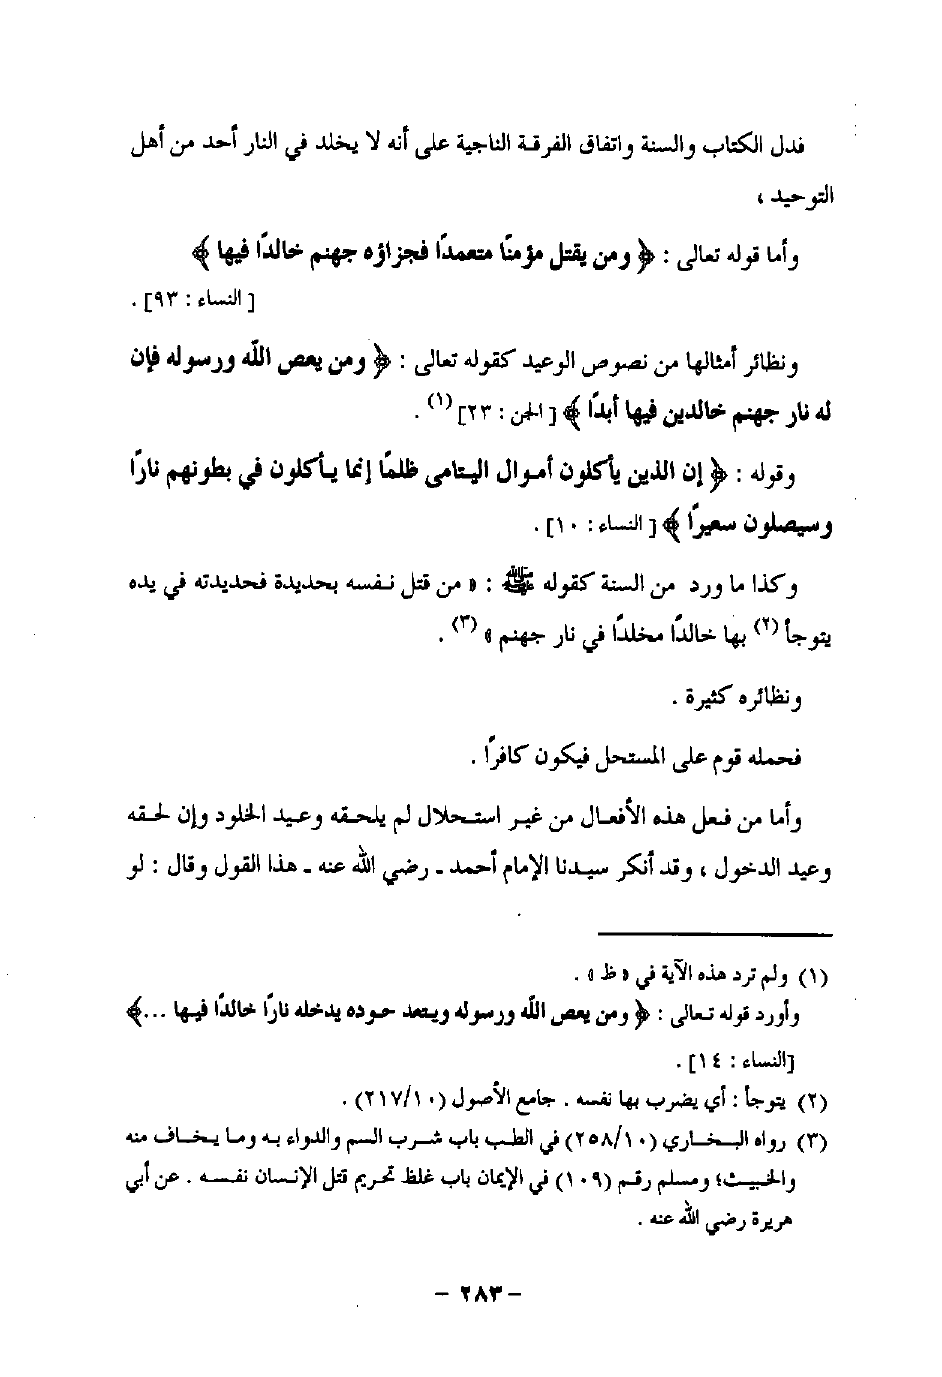 فدل الكتاب والسنة واتفاق الفرقة الناجية على أنه لا يخلد في النار أحد من أهل
التوحيد ،
وأما قوله تعالى : ﴿ ومن يقتل مؤمنًا متعمدًا فجزاؤه جهنم خالدًا فيها ﴾
[ النساء : ٩٣] .
ونظائر أمثالها من نصوص الوعيد كقوله تعالى : ﴿ ومن يعص الله ورسوله فإن
له نار جهنم خالدين فيها أبدًا ﴾ [ الجن : ٢٣] (١) .
وقوله : ﴿ إن الذين يأكلون أموال اليتامى ظلمًا إنما يأكلون في بطونهم نارًا
وسيصلون سعيرًا ﴾ [ النساء : ١٠] .
وكذا ما ورد من السنة كقوله ﷺ : « من قتل نفسه بحديدة فحديدته في يده
يتوجأ (٢) بها خالدًا مخلدًا في نار جهنم » (٣) .
ونظائره كثيرة .
فحمله قوم على المستحل فيكون كافرًا .
وأما من فعل هذه الأفعال من غير استحلال لم يلحقه وعيد الخلود وإن لحقه
وعيد الدخول ، وقد أنكر سيدنا الإمام أحمد ـ رضي الله عنه ـ هذا القول وقال : لو
(١) ولم ترد هذه الآية في « ظ » .
وأورد قوله تعالى : ﴿ ومن يعص الله ورسوله ويتعد حوده يدخله نارًا خالدًا فيها ...﴾
[النساء : ١٤] .
(٢) يتوجأ : أي يضرب بها نفسه . جامع الأصول (٢١٧/١٠) .
(٣) رواه البخاري (٢٥٨/١٠) في الطب باب شرب السم والدواء به وما يخاف منه
والخبيث؛ ومسلم رقم (١٠٩) في الإيمان باب غلظ تحريم قتل الإنسان نفسه . عن أبي
هريرة رضي الله عنه .
- ٢٨٣ -